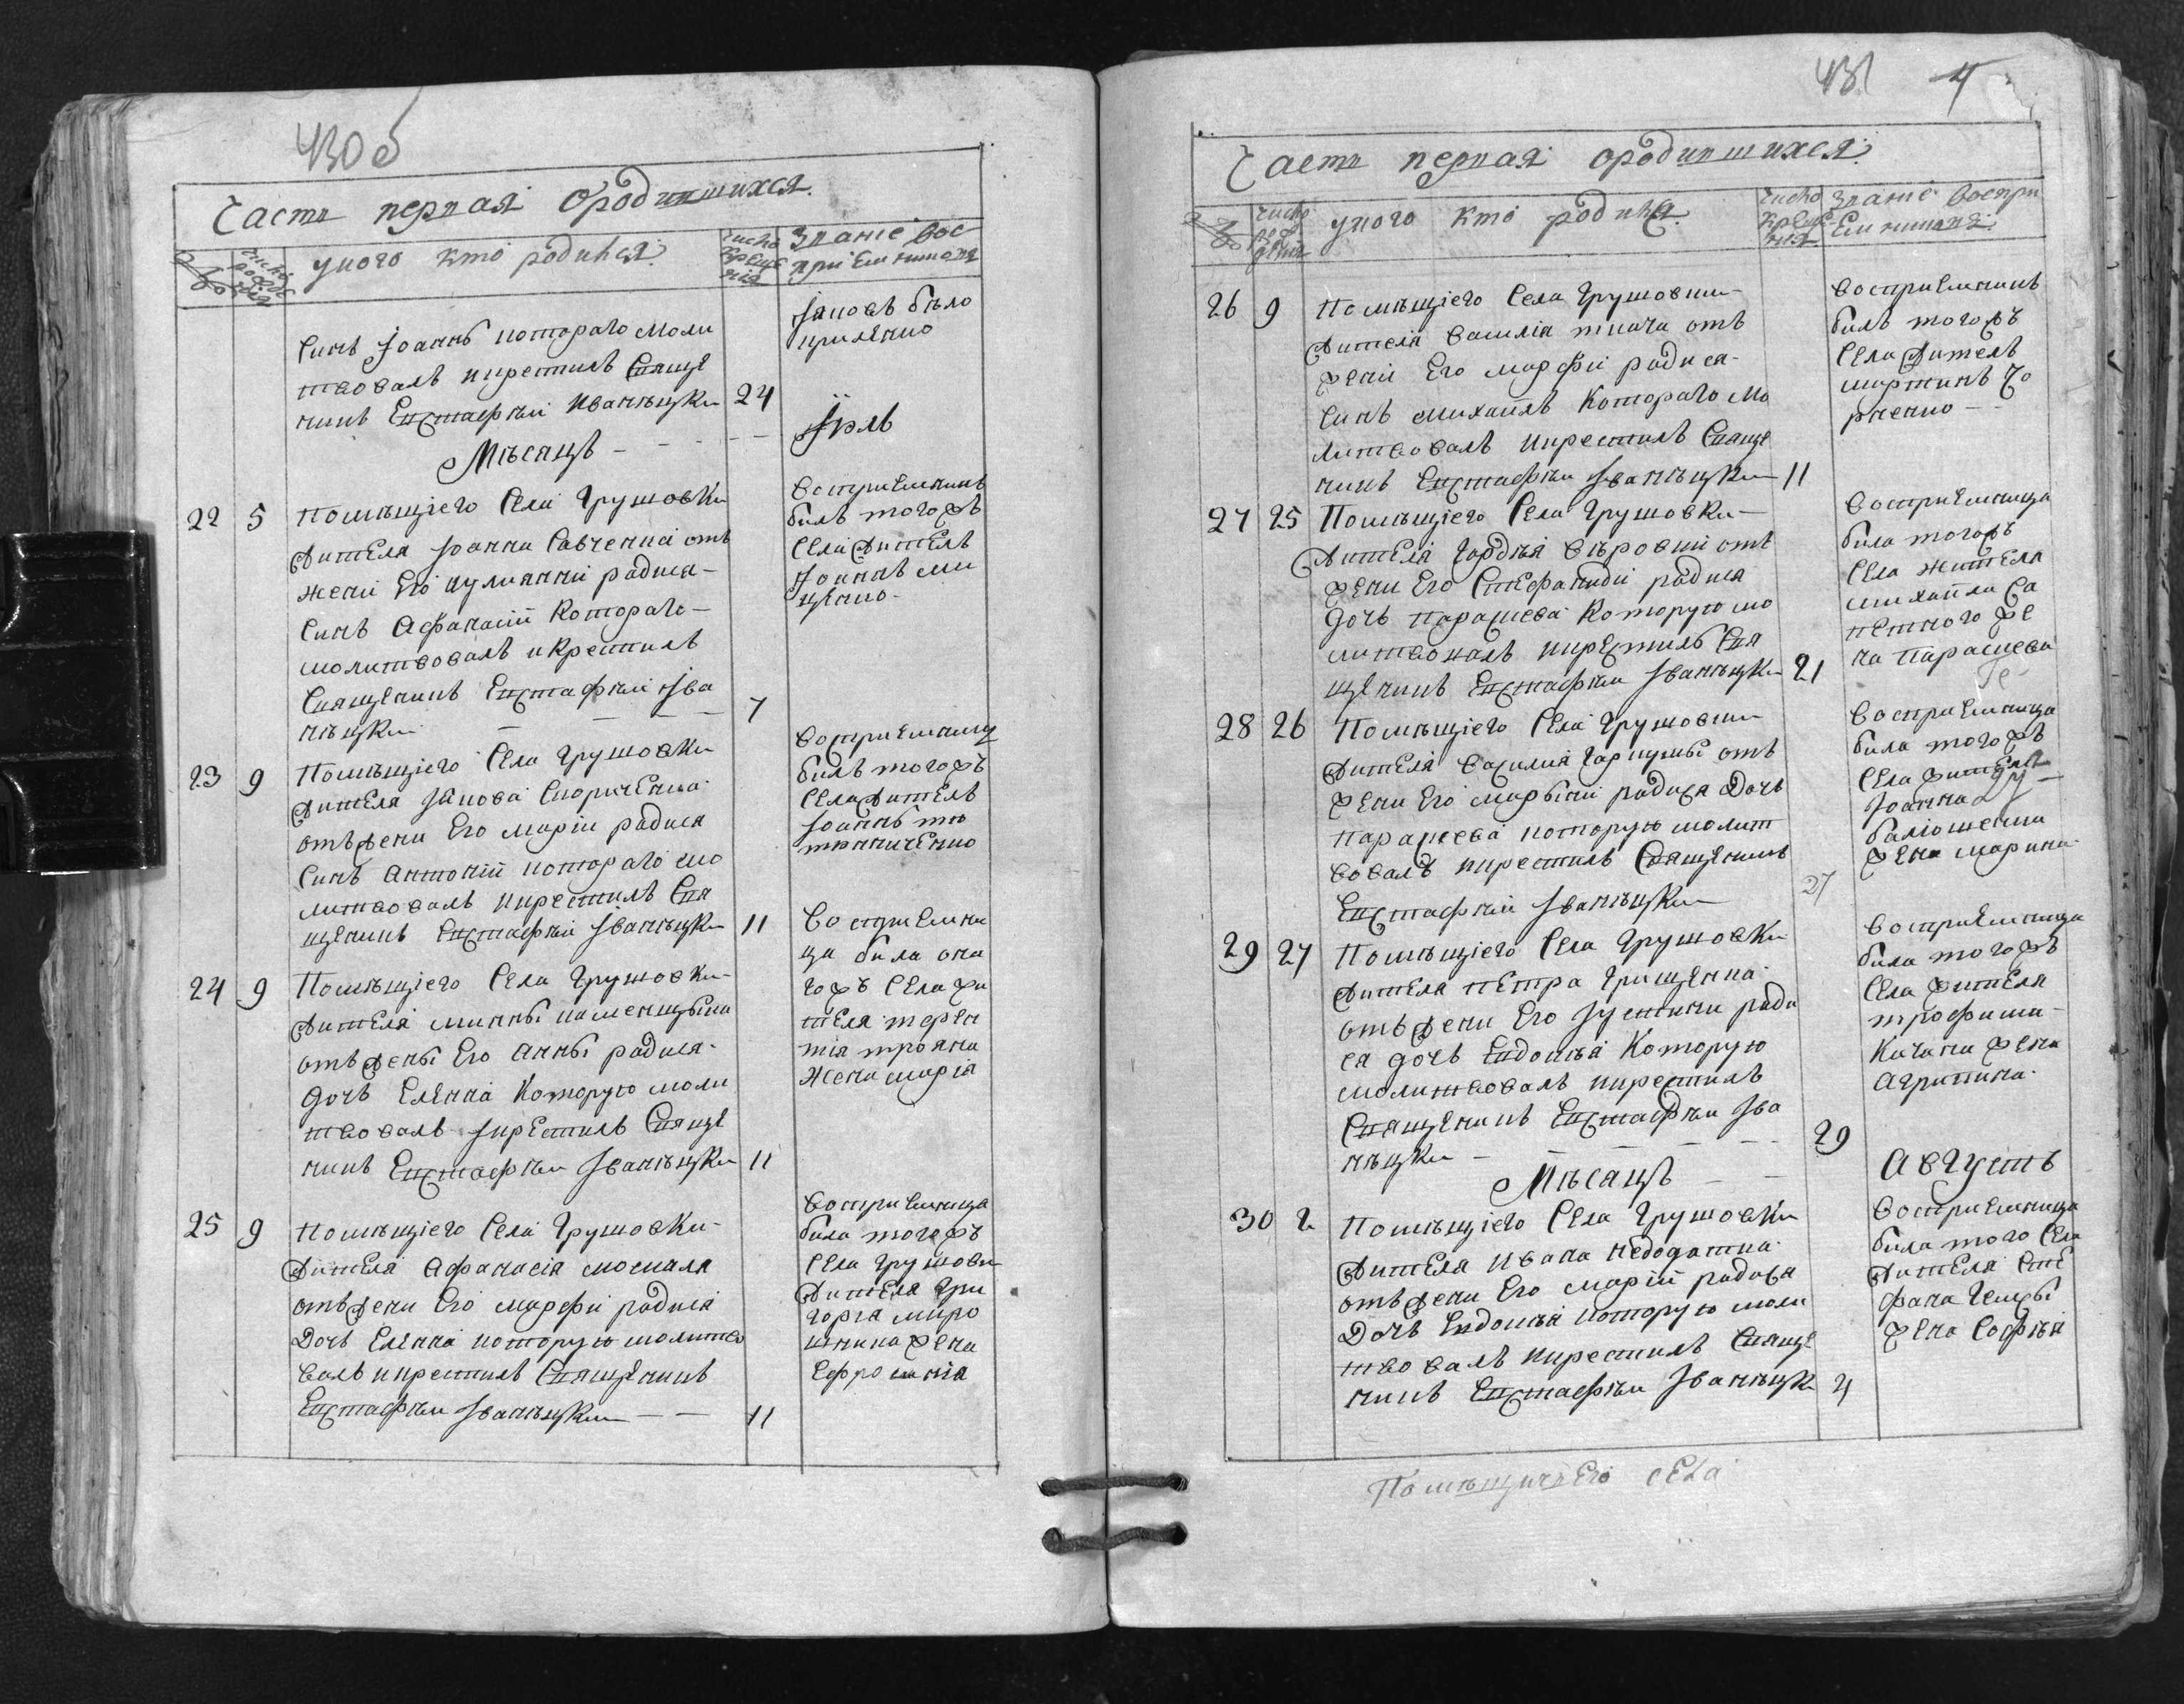 430 об
Часть первая ородившихся.
№
число рожденія
у кого кто родился.
число крещенія
Званіе вос
пріемниковъ
Синъ Іоаннъ котораго моли
твовалъ икрестилъ Свяще
никъ Евстафий Иваницки 24
Яковъ бѣло
Мѣсяцъ - - - Іуль
22 5 Помѣщіего Села Грушовки
жителя Іоанна Савченка отъ
жени Его иулианни родися-
Синъ Афанасій Котораго-
молитвовалъ и Крестилъ
Священикъ Евстафий Іва
ницки - - - 7
Восприемникъ
билъ того жъ
Села житель
Іоаннъ ми
щенко-
23 9 Помѣщіего Села Грушовки
жителя Іакова
отъ жени Его марии родися
Синъ Антоній котораго мо
литвовалъ икрестилъ Свя
щеникъ Евстафий Іваницки 11
Восприемник
билъ того жъ
Села житель
Іоаннъ
24 9 Помѣщіего Села Грушовки-
жителя минны
отъ жены Его Анны родися-
дочь Еленна Которую моли
твовалъ Икрестилъ Свяще
никъ Евстафии Іваницки 11
Восприемни
ца била
гожъ Села жи
теля терен
тія трояна
жена марія
25 9 Помѣщіего Села Грушовки-
жителя Афанасія москаля
отъ жени Его марфи родися
Дочь Еленна которую молитво
валъ икрестилъ Священикъ
Евстафии Іваницки - - 11
Восприемница
била тогожъ
Села Грушовки
жителя Гри
горія миро
шника жена
Ефросинія
431 4
Часть первая ородившихся.
№
число рожденія
у кого кто родися.
число крещенія
Званіе воспри
Емниковъ
26 9 Помѣщіего Села Грушовки-
жителя Василія ткача отъ
жени Его марфи родися-
Синъ михаилъ Котораго мо
литвовалъ икрестилъ Свяще
никъ Евстафии Іваницки 11
Восприемникъ
билъ тогожъ
Села житель
мартинъ Го
рпенко-
27 25 Помѣщіего Села Грушовки-
жителя Гордія отъ
жени Его Стефаниди родися
дочь параскева Которую мо
литвовалъ икрестилъ Свя
щеникъ Евстафии Іваницки 21
Восприемница
била тогожъ
Села жителя
михаила Са
же
на параскева
28 26 Помѣщіего Села Грушовки
жителя Василия Гаркушы отъ
жени Его родися Дочь
параскева которую молит
вовалъ икрестилъ Священикъ
Евстафий Іваницки 27
Восприемница
била того жъ
Села жителя
Іоанна
жена марина
29 27 Помѣщіего Села Грушовки
жителя Петра Грищенка
отъ жени Его Іустини роди
ся дочь Евдокия Которую
молитвовалъ икрестилъ
Священикъ Евстафии Іва
ницки - - - 29
Восприемница
била того жъ
Села жителя
трофима-
Качана жена
Агрипина
Мѣсяцъ - - Августъ
30 2 Помѣщіего Села Грушовки
жителя Ивана недодатка
отъ жени Его марій родися
Дочь Евдокия которую моли
твовалъ икрестилъ Свяще
никъ Евстафии Іваницки 4
Восприемница
била того Села
жителя Сте
фана
жена Софія
Помѣщичьего села